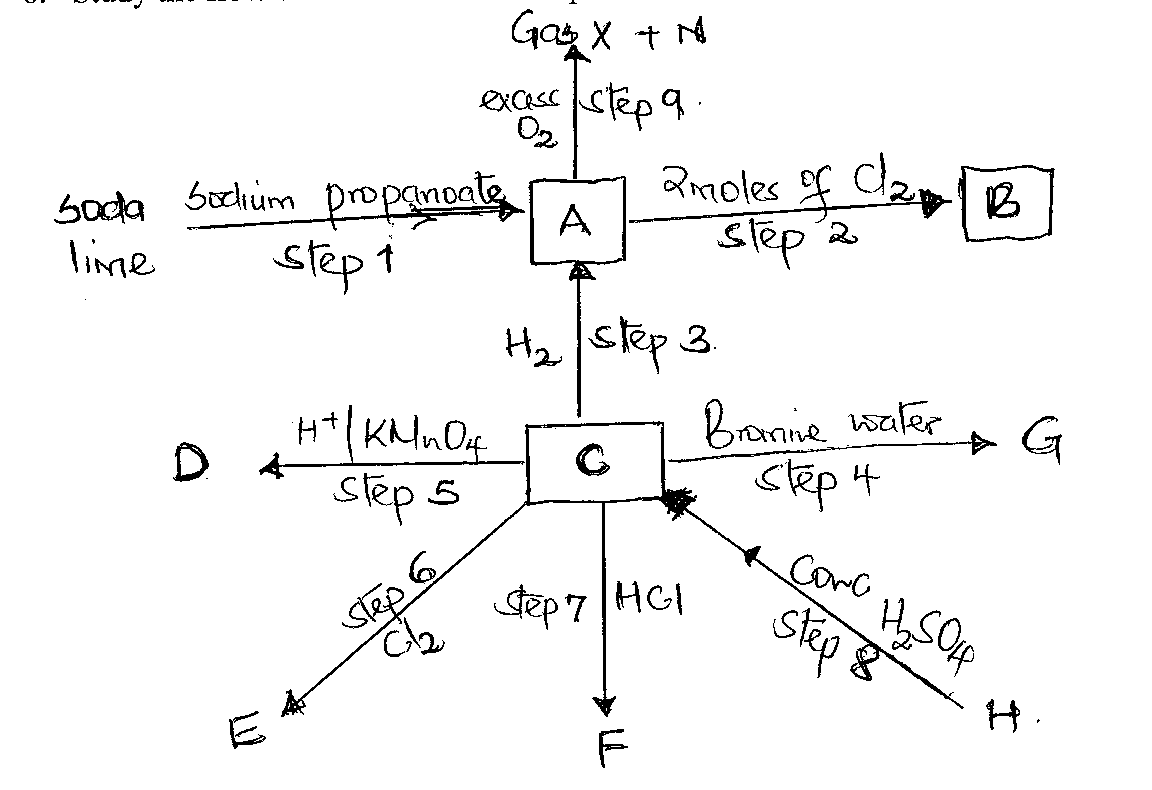 Gas X + N
excess
O2
Step 9.
soda
lime
Sodium propanoate
Step 1
A
2moles of Cl2
Step 2
B
H2
Step 3.
D
H+/KMnO4
Step 5
C
Bromine water
Step 4
G
Step 6
Cl2
Step 7
HCl
Conc H2SO4
Step 8
E
F
H.